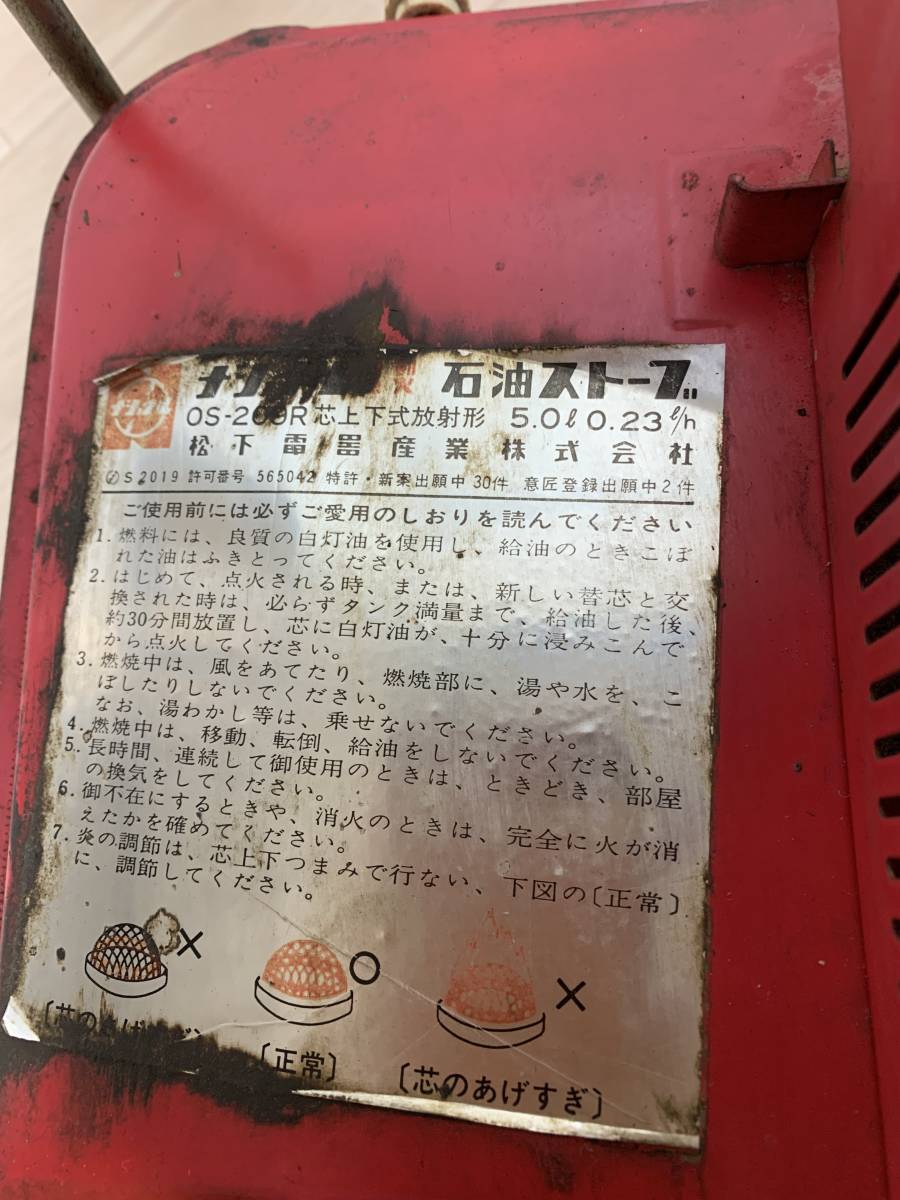 ナショナル
石油ストーブ
OS-209R 芯上下式放射形 5.0ℓ 0.23ℓ/h
松下電器産業株式会社
S2019 許可番号 565042 特許・新案出願中30件 意匠登録出願中2件
ご使用前には必ずご愛用のしおりを読んでください
1. 燃料には、良質の白灯油を使用し、給油のときこぼ
れた油はふきとってください。
2. はじめて、点火される時、または、新しい替芯と交
換された時は、必らずタンク満量まで、給油した後、
約30分間放置し、芯に白灯油が、十分に浸みこんで
から点火してください。
3. 燃焼中は、風をあてたり、燃焼部に、湯や水を、こ
ぼしたりしないでください。
なお、湯わかし等は、乗せないでください。
4. 燃焼中は、移動、転倒、給油をしないでください。
5. 長時間、連続して御使用のときは、ときどき、部屋
の換気をしてください。
6. 御不在にするときや、消火のときは、完全に火が消
えたかを確めてください。
7. 炎の調節は、芯上下つまみで行ない、下図の〔正常〕
に、調節してください。
× ○ ×
〔正常〕
〔芯のあげすぎ〕